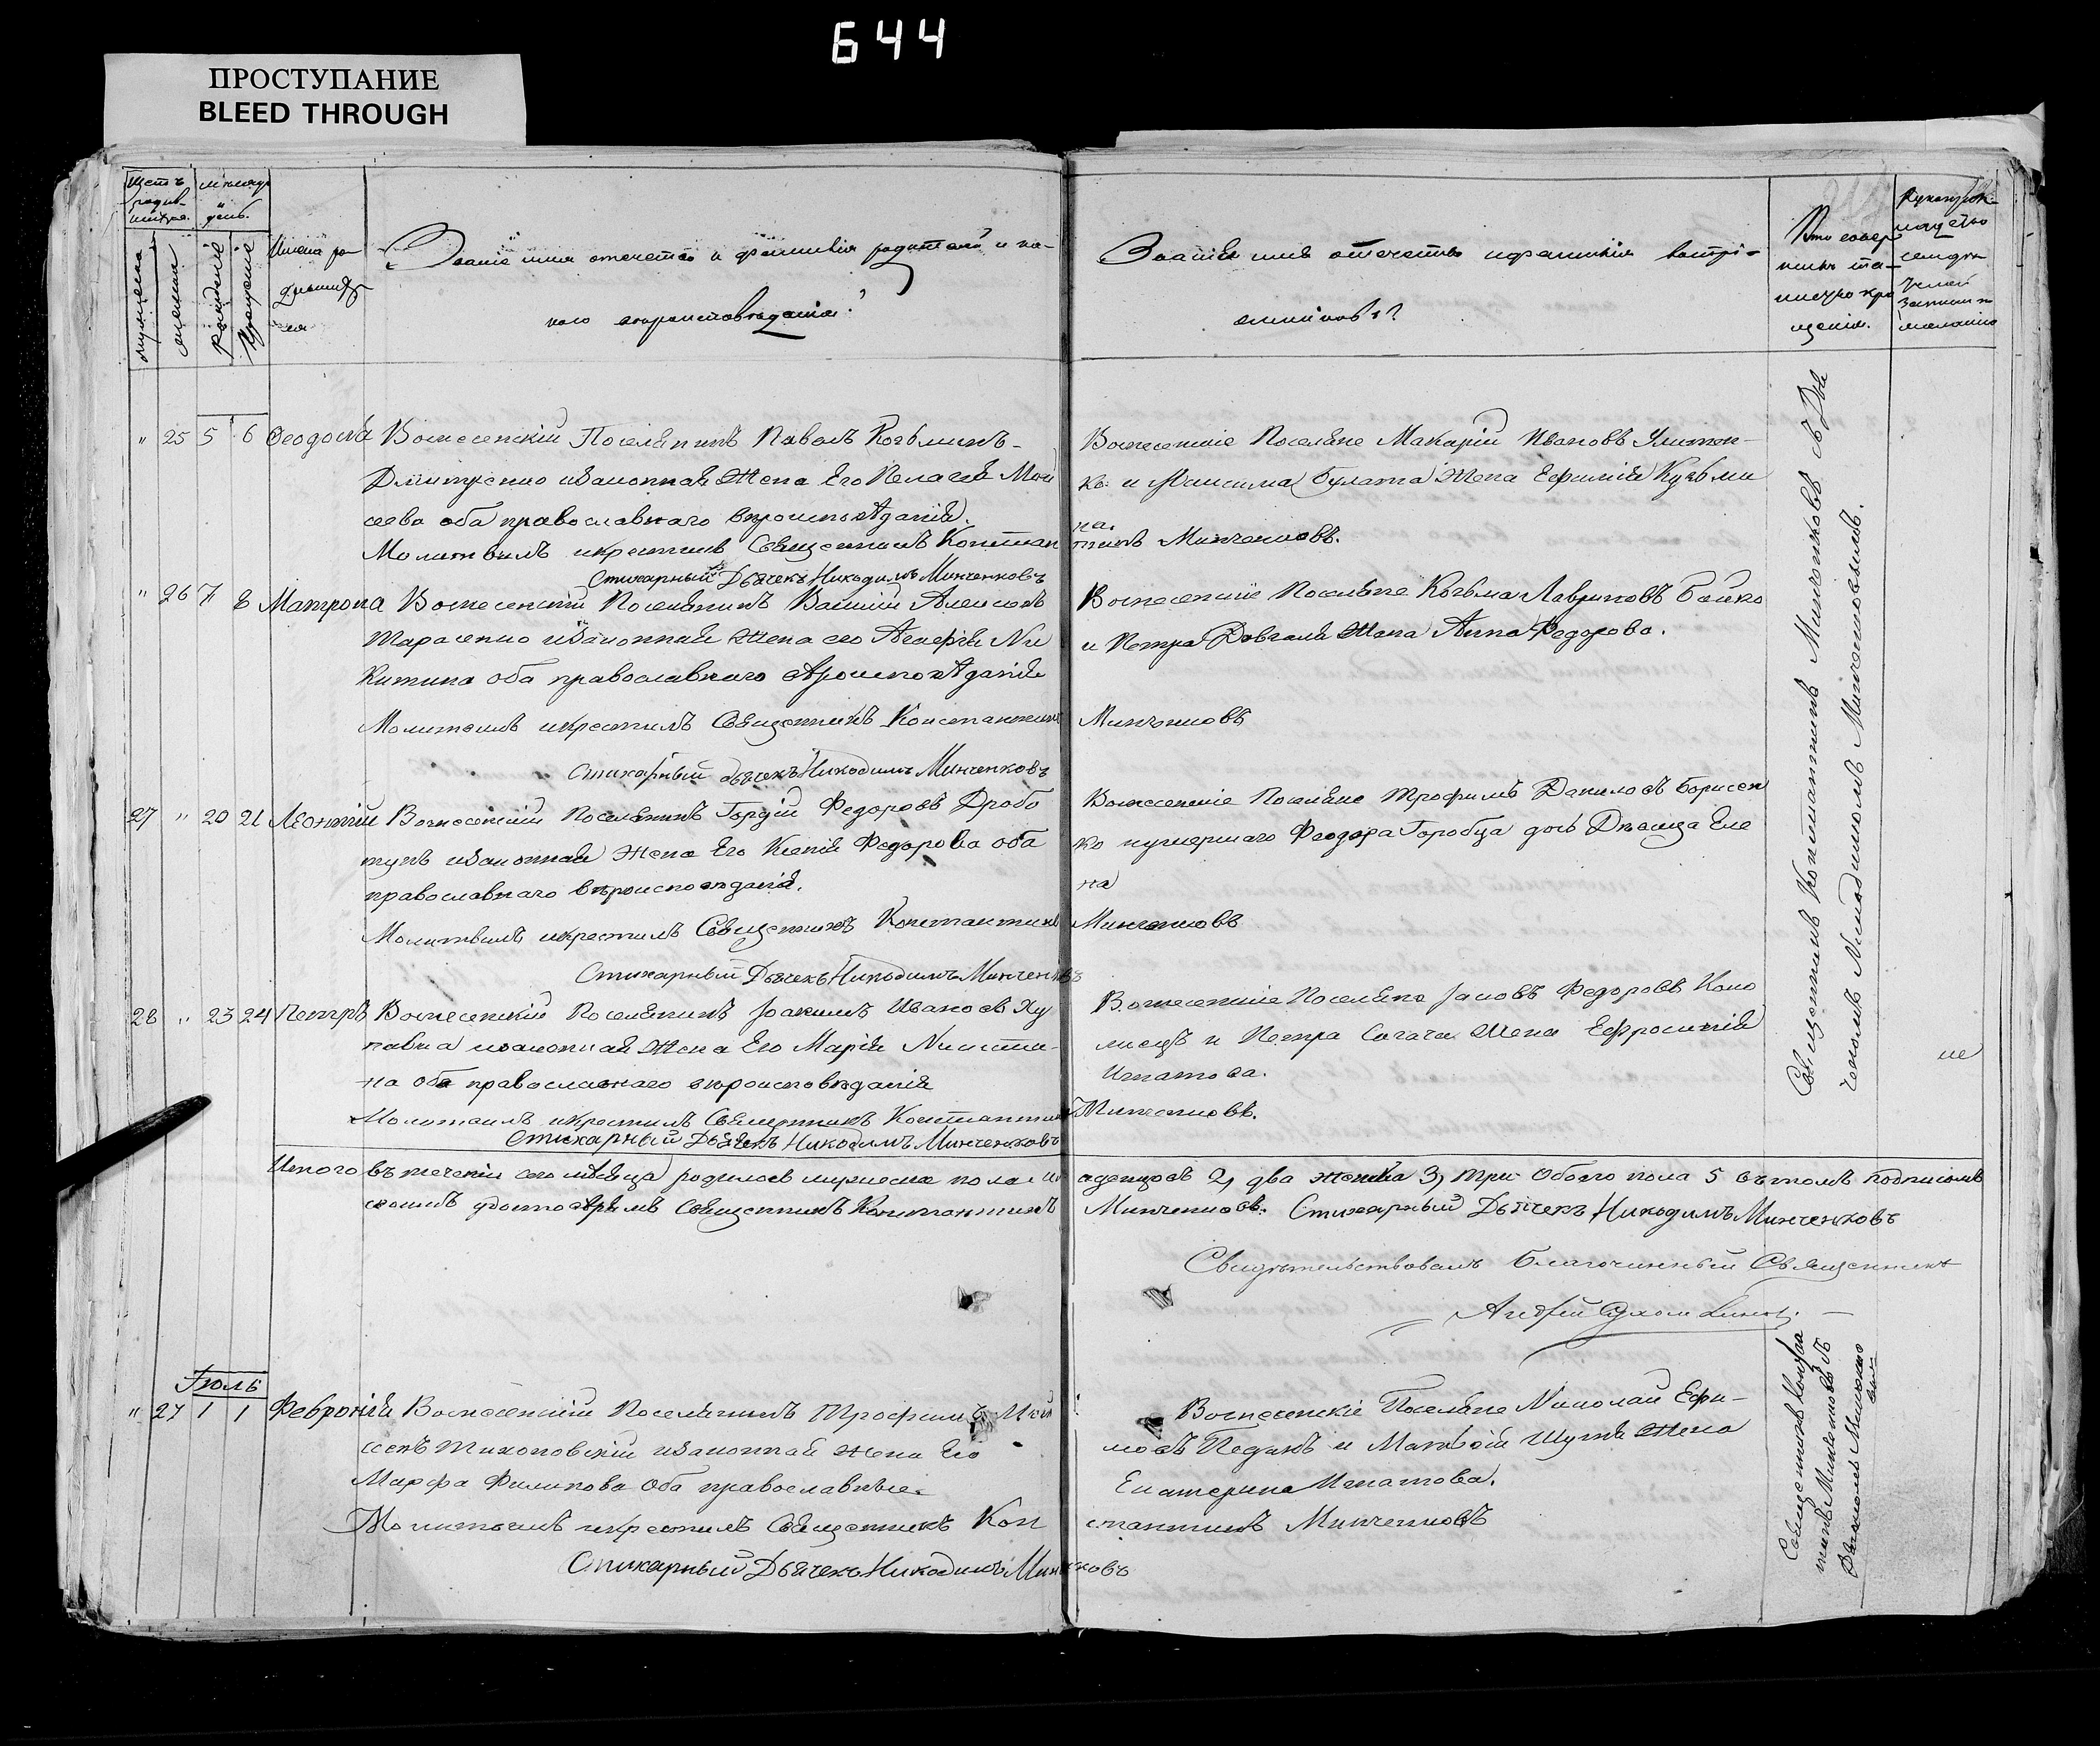 644
ПРОСТУПАНИЕ
BLEED THROUGH
Щетъ родив-шихся.
мѣсяцъ и день.
мужеска
женска
рожденіе
крещеніе
Имена ро
дивших
ся
Званіе имя отечество и фамилія родителей и ка-
кого вероисповѣданія?
Званіе имя отечество и фамилія воспрі-
емниковъ?
Кто совер
шилъ та-
инство кре
щенія.
Рукоприк-
ладство
свидѣ
телей
записи по
желанію
" 25 5 6 Феодосія Вознесенскій Поселянинъ Павелъ Козьминъ
Дмитренко изаконная Жена Его Пелагея Мои
сеева оба православнаго вероисповѣданія.
Молитвилъ икрестилъ Священникъ Констан
Стихарный Дьячекъ Никодимъ Минченковъ
Вознесенскіе Поселяне Макарій Ивановъ
и Максима Булата Жена Ефимія Кузьми
на.
тинъ Минченковъ.
" 26 7 8 Матрона Вознесенскій Поселянинъ Василій Алексеевъ
Тарасенко изаконная Жена его Агафія Ни
китина оба православнаго вѣроисповѣданія
Молитвилъ икрестилъ Священникъ Константинъ
Стихарный дьячекъ Никодимъ Минченковъ
Вознесенскіе Поселяне Козьма Лавриновъ Бойко
и Петра Довгаля Жена Анна Федорова.
Минченковъ
27 " 20 21 Леонтій Вознесенскій Поселянинъ Гордій Федоровъ Дробо
тунъ изаконная Жена Его Ксенія Федорова оба
православнаго вѣроисповѣданія.
Молитвилъ икрестилъ Священникъ Константинъ
Стихарный Дьячекъ Никодимъ Минченковъ
Вознесенскіе Поселяне Трофимъ Даниловъ Борисен
ко иумершаго Феодора Горобца дочь Дѣвица Еле
на
Минченковъ
28 " 23 24 Петръ Вознесенскій Поселянинъ Іоакимъ Ивановъ Ху
павка изаконная Жена Его Марія Никити-
на оба православнаго вероисповѣданія
Молитвилъ икрестилъ Священникъ Константинъ
Стихарный Дьячекъ Никодимъ Минченковъ
Вознесенскіе Поселяне Іаковъ Федоровъ Коло
міецъ и Петра Сагача Жена Ефросинія
Игнатова.
Минченковъ.
Священникъ Константинъ Минченковъ съ Дья
чекомъ Никодимомъ Минченковымъ.
Итого въ теченіи сего мѣсяца родилось мужеска пола
аденцовъ 2, два женска 3, три Обоего пола 5 вътомъ подписомъ
своимъ удостовѣряемъ Священникъ Константинъ
Минченковъ. Стихарный Дьячекъ Никодимъ Минченковъ
Свидѣтельствовалъ Благочинный Священникъ
Андрей
Іюль
" 27 1 1 Февронія Вознесенскій Поселянинъ Трофимъ Мои
сеевъ Тихоновскій изаконная жена Его
Марфа Филипова Оба православные.
Молитвилъ икрестилъ Священникъ Кон
Стихарный Дьячекъ Никодимъ Минченковъ
Вознесенскіе Поселяне Николай Ефи-
мовъ Педикъ и Матвѣй Шугля Жена
Екатерина Игнатова.
стантинъ Минченковъ
Священникъ Констан
тинъ Минченковъ съ
Дьячкомъ Минченко
вымъ